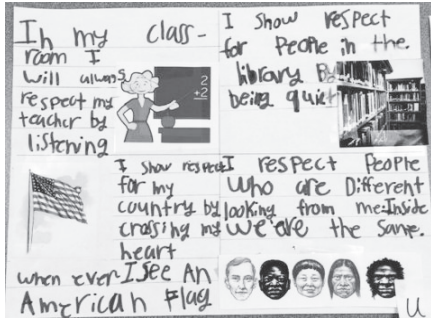 In my class-
room I
will always
respect my
teacher by
listening
2
+2
I show respect
for People in the.
library By
being quiet
I show respect
for my
country by
crossing my
heart
when ever I see An
American Flag
I respect People
who are Different
looking from me. Inside
we are the same.
U